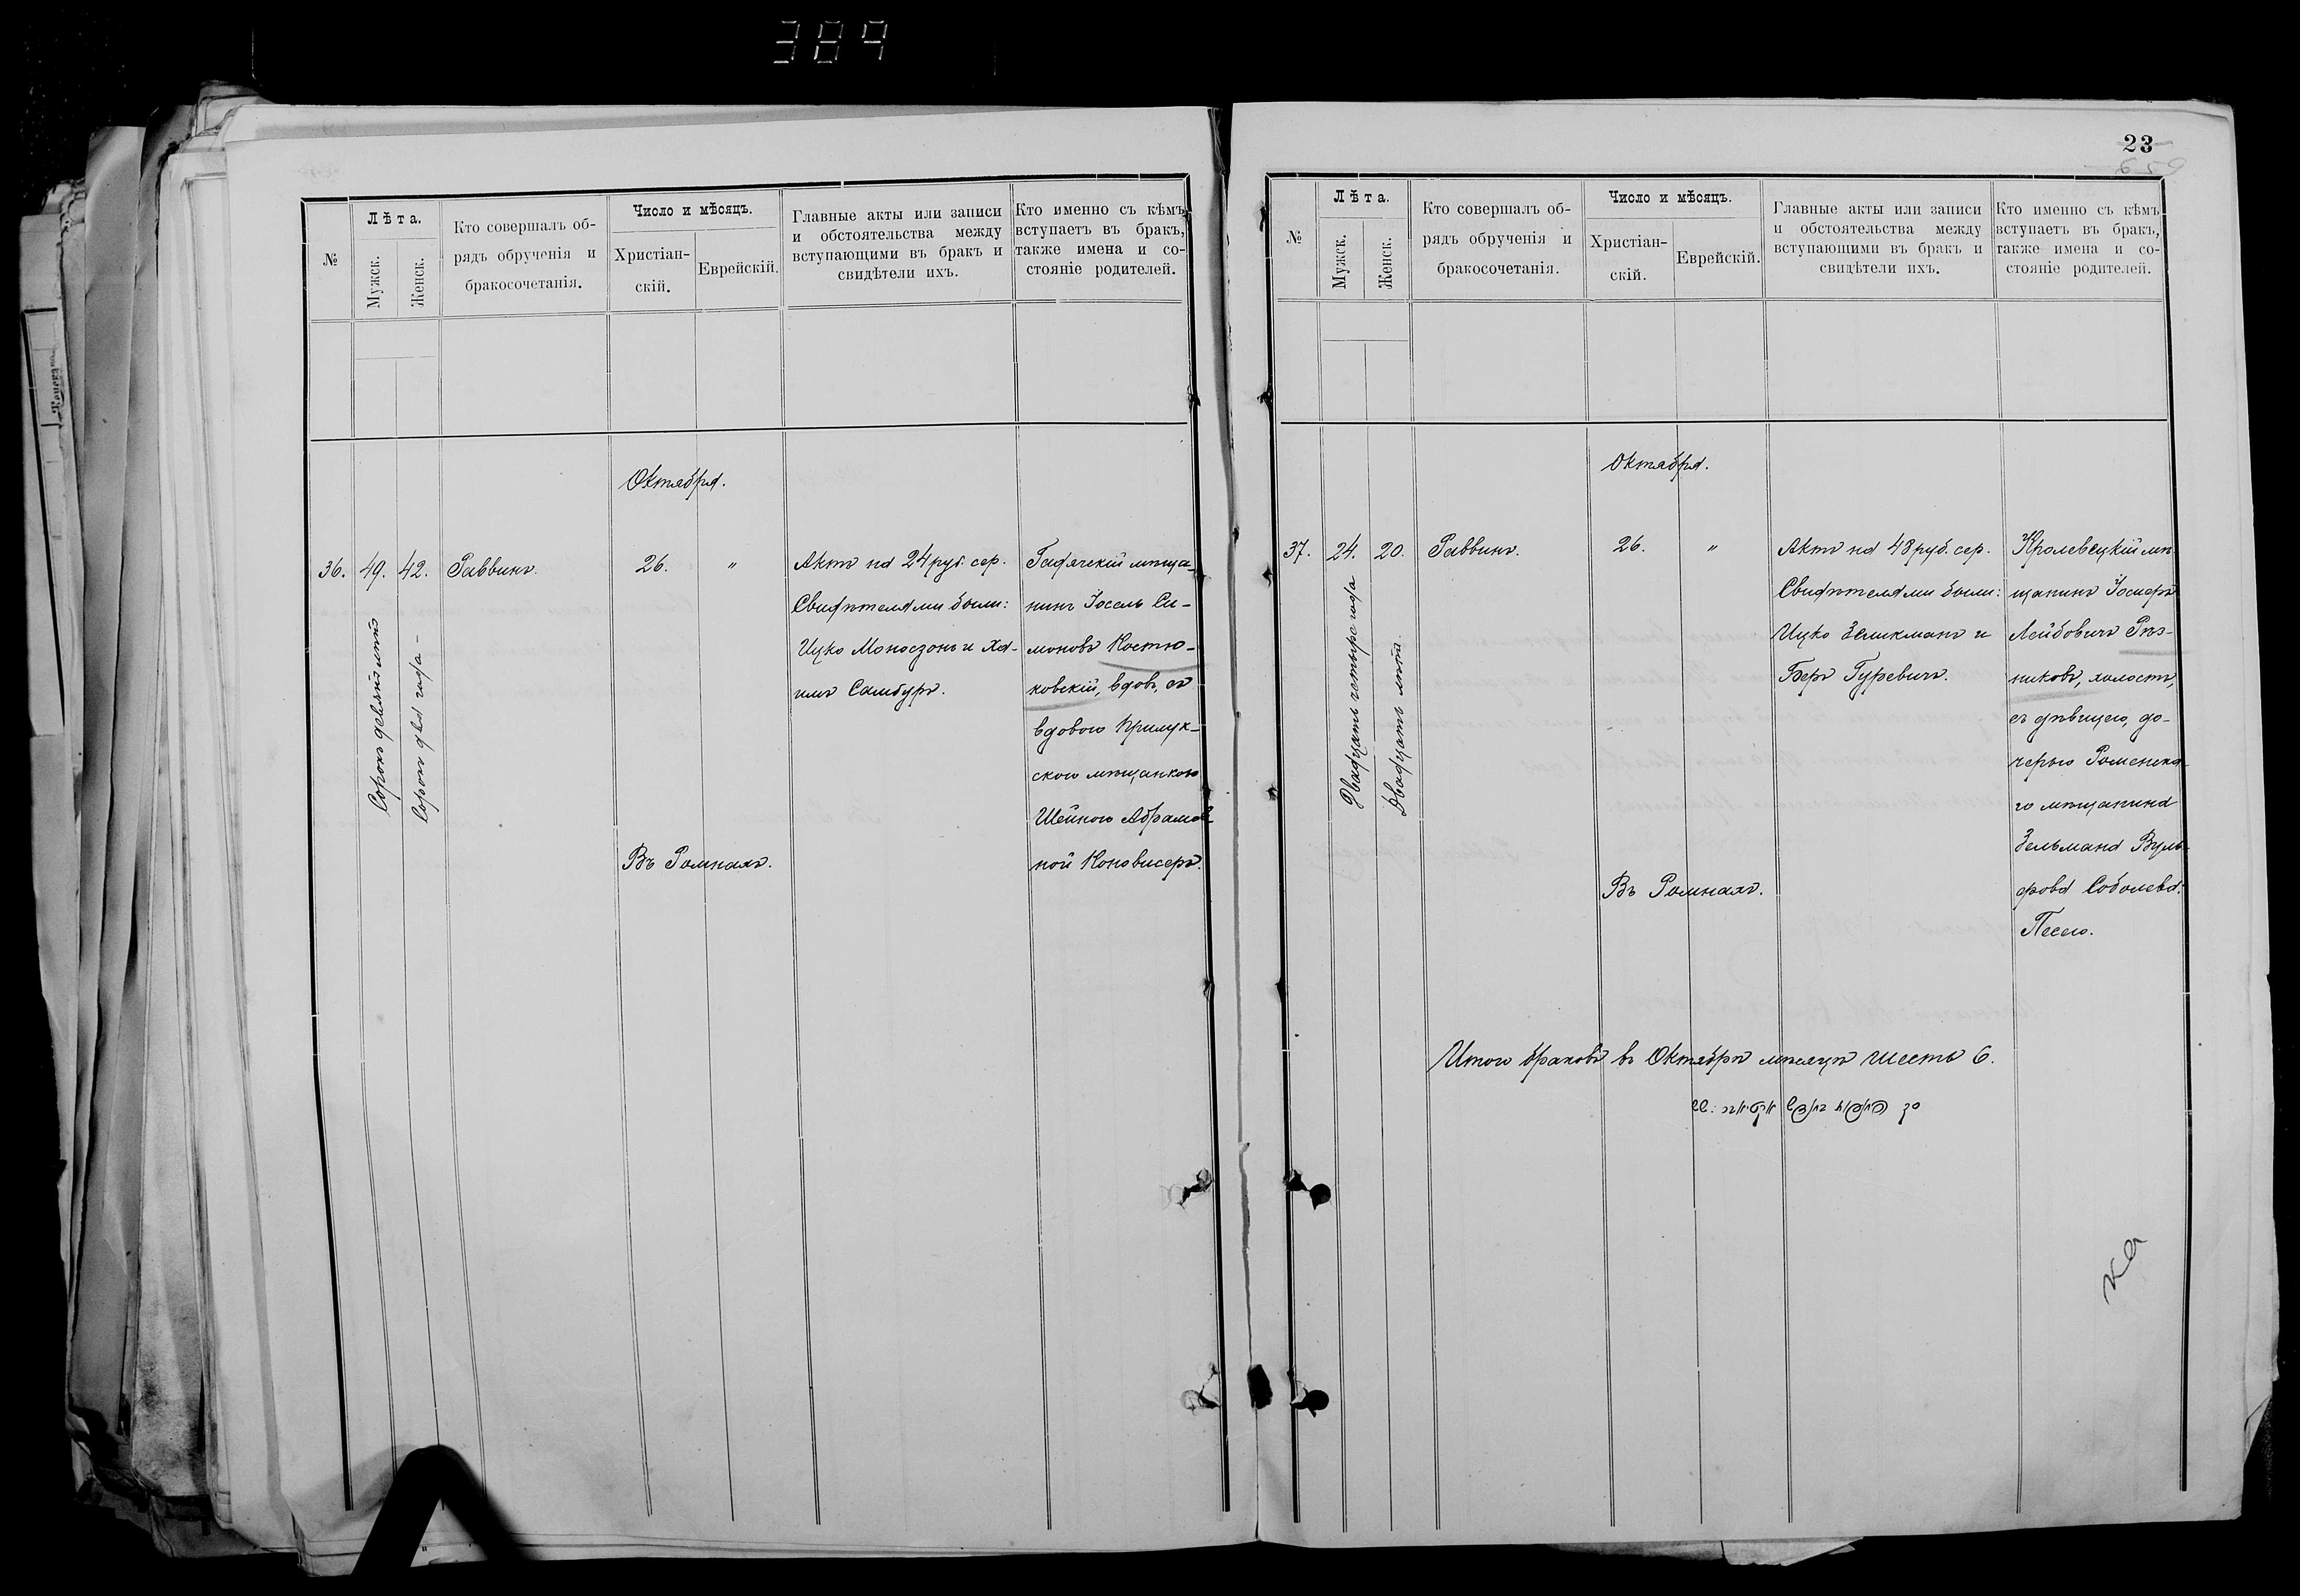 389
№
Лѣта.
Мужск.
Женск.
Кто совершалъ об-
рядъ обрученія и
бракосочетанія.
Число и мѣсяцъ.
Христіан-
скій.
Еврейскій.
Главные акты или записи
и обстоятельства между
вступающими въ бракъ и
свидѣтели ихъ.
Кто именно съ кѣмъ
вступаетъ въ бракъ,
также имена и со-
стояніе родителей.
Октября.
36. 49. 42. Раввинъ. 26. "
Сорокъ девять лѣтъ
Сорокъ два года
Актъ на 24 руб. сер.
Свидѣтелями были:
Ицко Моносзонъ и Ха-
имъ Самбуръ.
Гадячскій мѣща-
нинъ Іосель Си-
моновъ Костю-
ковскій, вдовъ, съ
вдовою Прилук-
скою мѣщанкою
Шейною Абрамов
ной Коновисеръ.
Въ Ромнахъ.
23
659
№
Лѣта.
Мужск.
Женск.
Кто совершалъ об-
рядъ обрученія и
бракосочетанія.
Число и мѣсяцъ.
Христіан-
скій.
Еврейскій.
Главные акты или записи
и обстоятельства между
вступающими въ бракъ и
свидѣтели ихъ.
Кто именно съ кѣмъ
вступаетъ въ бракъ,
также имена и со-
стояніе родителей.
Октября.
37. 24. 20. Раввинъ. 26. "
Двадцать четыре года
Двадцать лѣтъ
Актъ на 48 руб. сер.
Свидѣтелями были:
Ицко Зеликманъ и
Беръ Гуревичъ.
Кролевецкій мѣ-
щанинъ Іосифъ
Лейбовичъ Рѣз-
никовъ, холостъ,
съ дѣвицею, до-
черью Роменска-
го мѣщанина
Зельмана Вуль-
фова Соболева:
Песею.
Въ Ромнахъ.
Итого браковъ въ Октябрѣ мѣсяцѣ шесть 6.